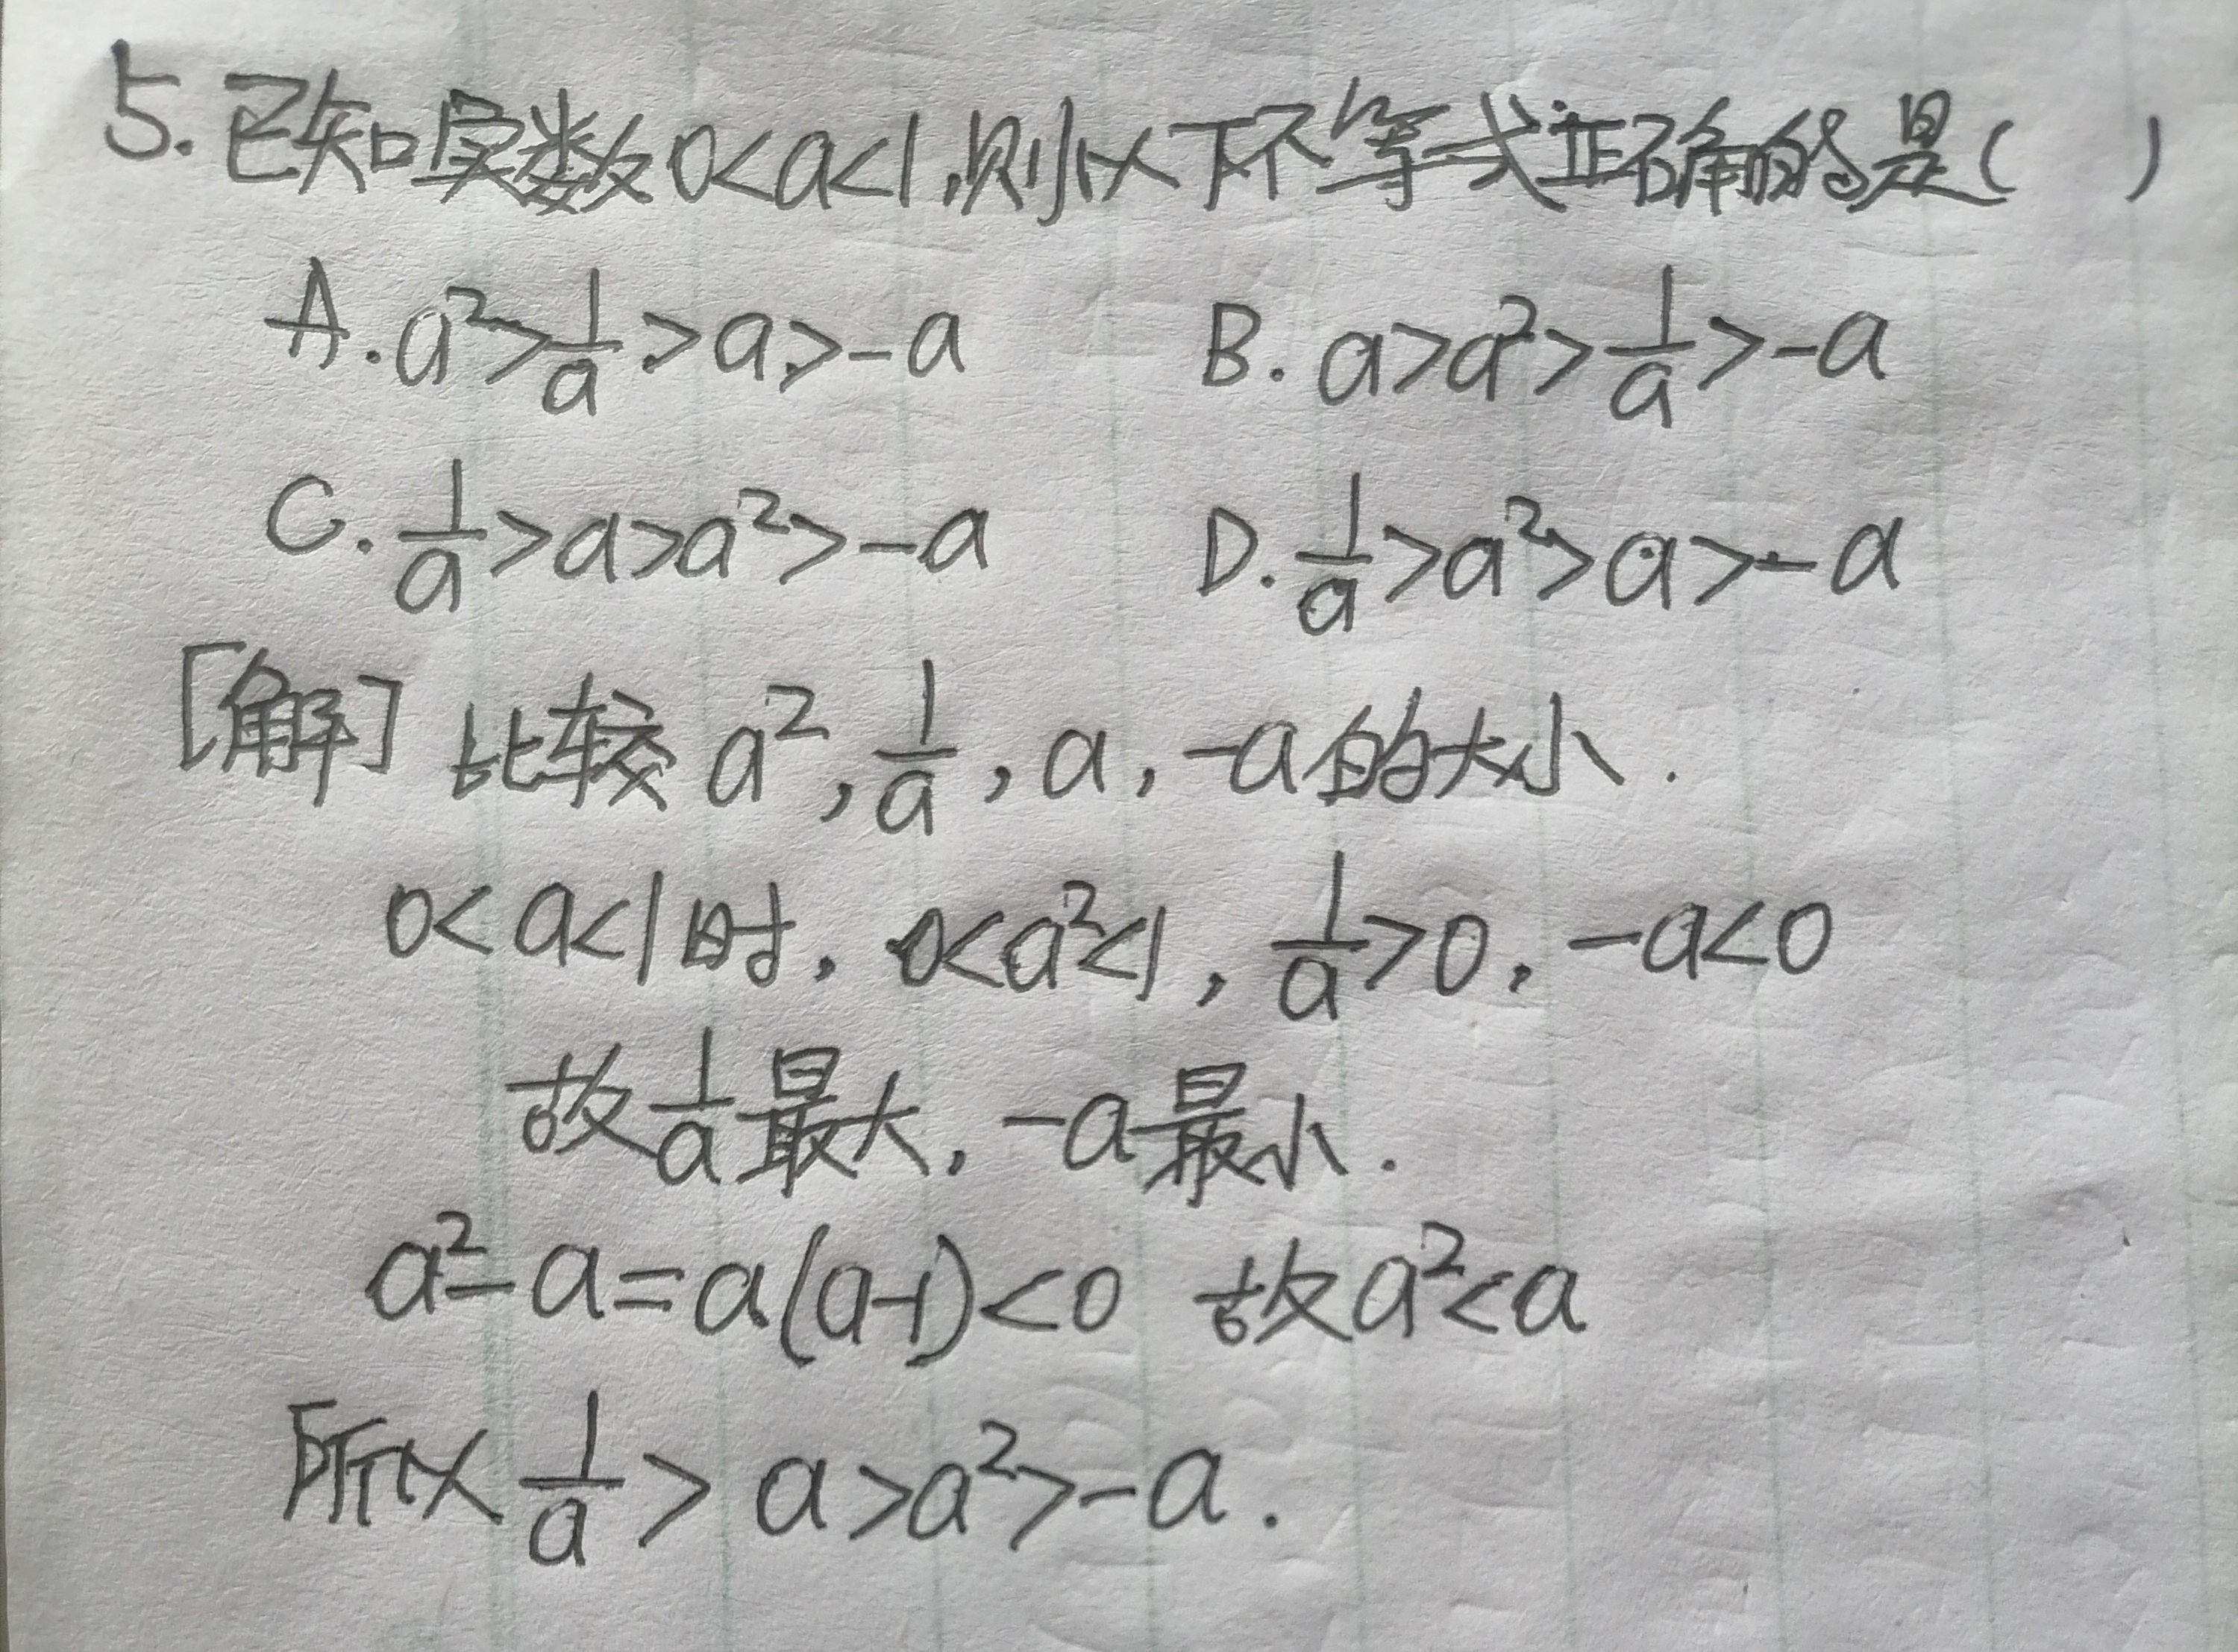 5. 已知实数0<a<1,则以下不等式正确的是( )
A. a²>1/a>a>-a B. a>a²>1/a>-a
C. 1/a>a>a²>-a D. 1/a>a²>a>-a
[解] 比较 a², 1/a, a, -a的大小.
0<a<1时, 0<a²<1, 1/a>0, -a<0
故1/a最大, -a最小.
a²-a=a(a-1)<0 故a²<a
所以1/a>a>a²>-a.